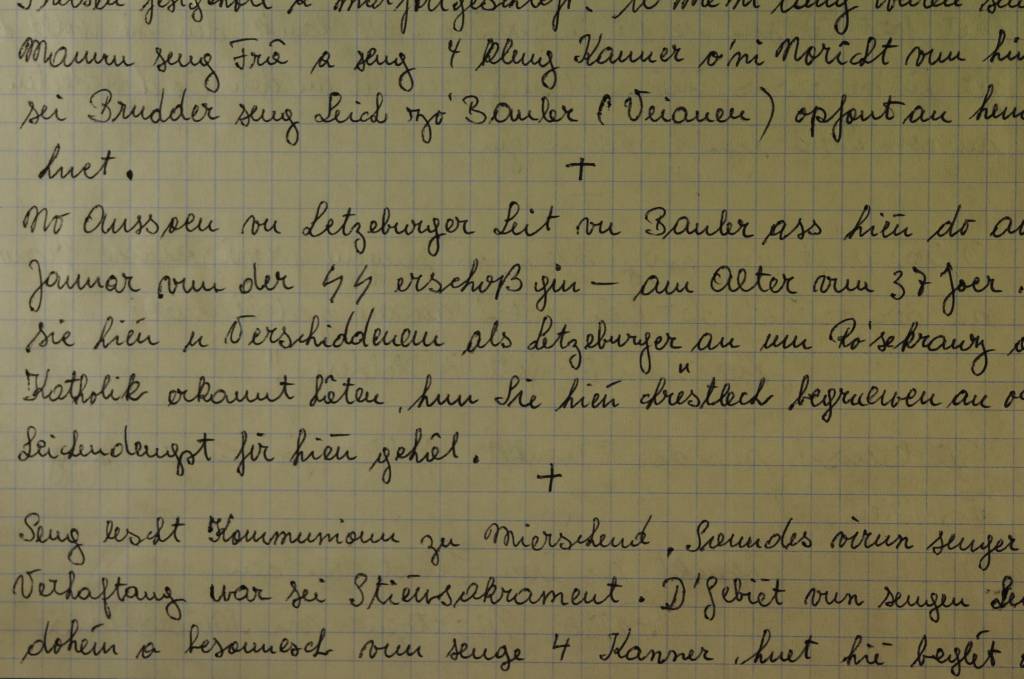 festgeholl a mat fortgeschleeft.
Mamm seng Frâ a seng 4 kleng Kanner o'ni Noricht vun him
sei Brudder seng Leich zo' Bauler (Veianen) opfont an hem
huet. +
No Aussoen vu Letzeburger Leit vu Bauler ass hien do
Januar vun der 44 erschoß gin – am Alter vun 37 Joer.
sie hien u Verschiddenem als Letzeburger an um Ro'sekranz
Katholik erkannt hâten, hun sie hien chrëstlech begruewen an
Leichendengst fir hien gehâl. +
Seng lescht Kommunioun zu Mierschend, Sonndes virun senger
Verhaftang war sei Stierwsakrament. D'Gebiet vun sengen
dohém a besonnesch vun senge 4 Kanner, huet hie beglét